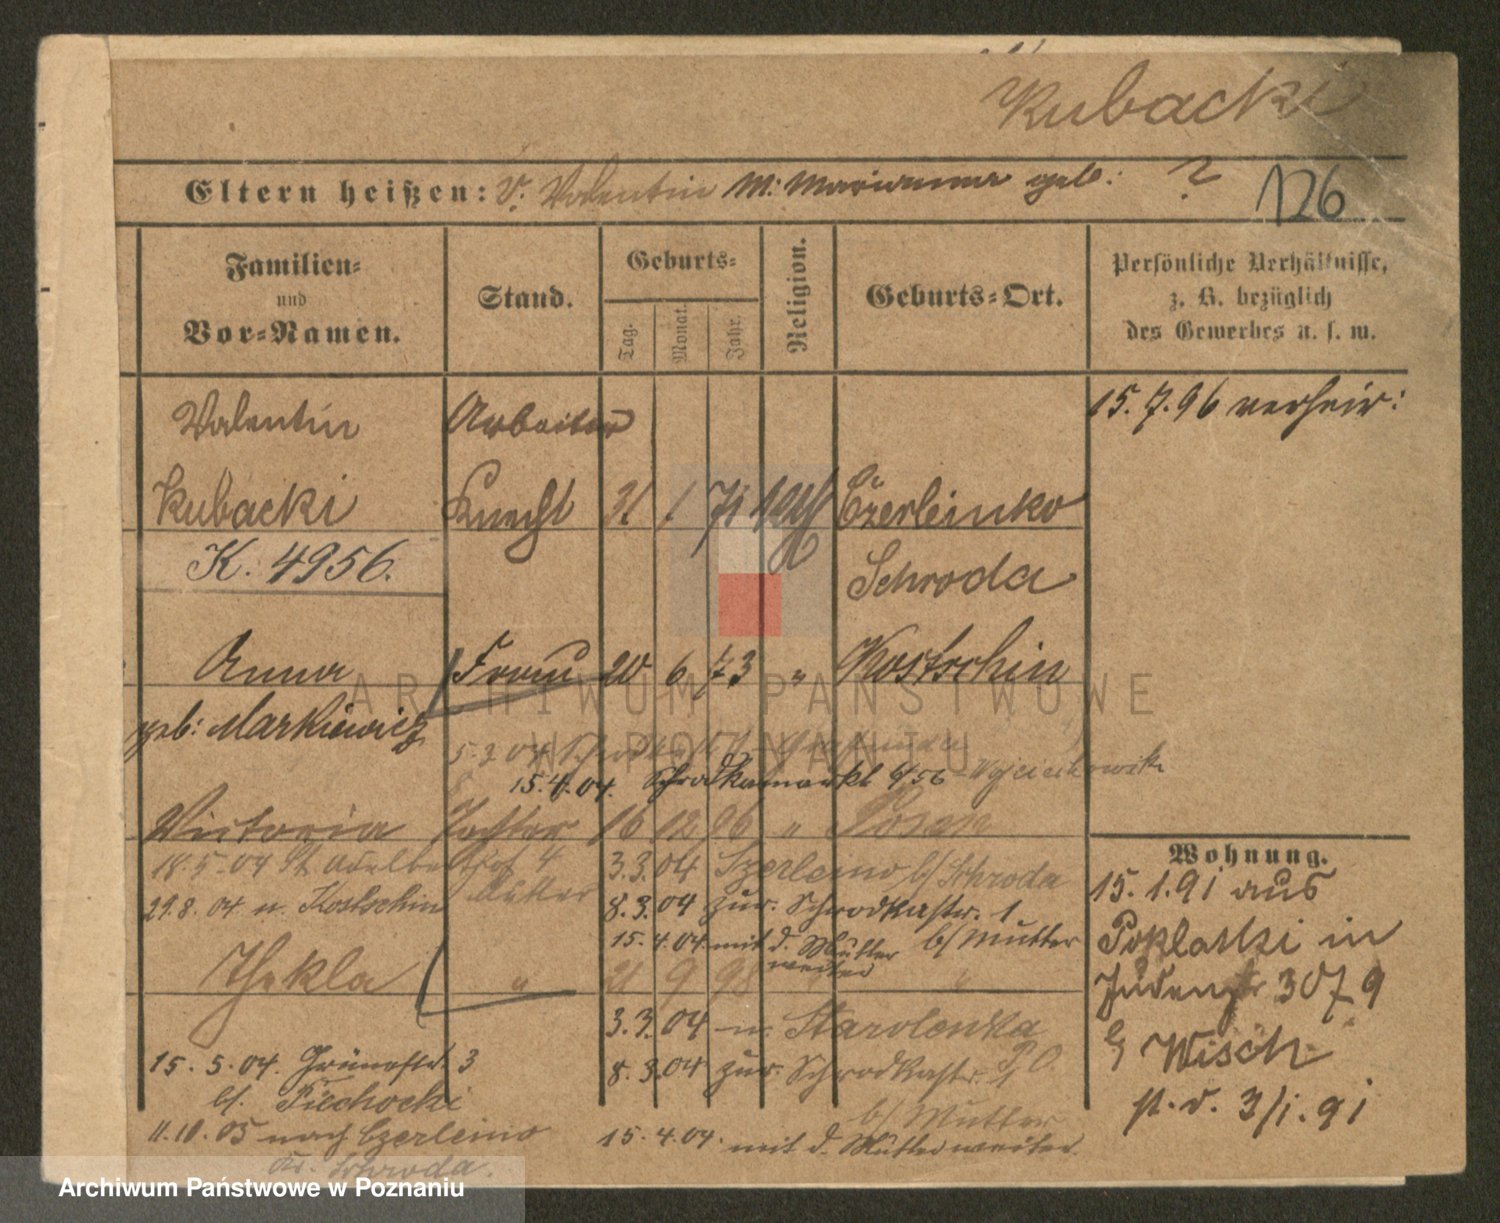 Kubacki
Eltern heißen: V. Valentin M: Marianna geb: ?
126
Familien=
und
Vor=Namen.
Stand.
Geburts=
Tag.
Monat.
Jahr.
Religion.
Geburts=Ort.
Persönliche Verhältnisse,
z. B. bezüglich
des Gewerbes u. s. w.
Valentin Arbeiter 15.7.96 verheir:
Kubacki Knecht 31 1 71 kath Czerleinko
K. 4956. Schroda
Anna Frau 20 6 73 " Kostschin
geb: Markiewicz
5.2.04
15.4.04. Schrodkamarkt 4/56 Wojciechowski
Victoria Tochter 16 12 96 " Posen
18.5.04 St. Adalbertstr 4
Mutter
29.8.04 n. Kostschin
3.3.04 Szerleino b/ Schroda
8.3.04 zur. Schrodkastr. 1
b/ Mutter
15.4.04. mit d. Mutter
weiter
Thekla " 21 9 98 " "
3.3.04 n. Starolenka
8.3.04 zur. Schrodkastr. 1
b/ Mutter
15.4.04. mit d. Mutter weiter.
15.5.04. Grünestr. 3
b/. Piechocki
11.10.05 nach Czerleino
Kr. Schroda.
Wohnung.
15.1.91 aus
Poklatki in
Judenstr 30 7 9
b/ Wisch
p. v. 3/1.91
ARCHIWUM PAŃSTWOWE
W POZNANIU
Archiwum Państwowe w Poznaniu